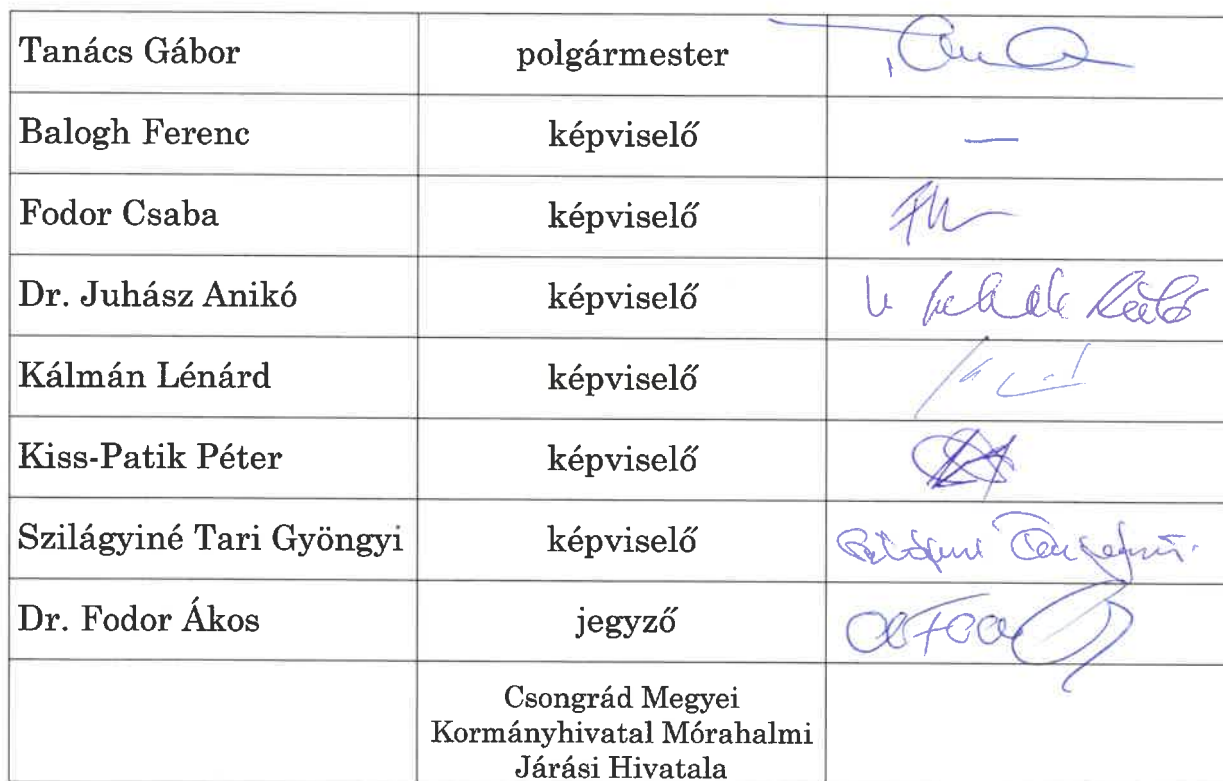 Tanács Gábor polgármester
Balogh Ferenc képviselő —
Fodor Csaba képviselő
Dr. Juhász Anikó képviselő
Kálmán Lénárd képviselő
Kiss-Patik Péter képviselő
Szilágyiné Tari Gyöngyi képviselő
Dr. Fodor Ákos jegyző
Csongrád Megyei
Kormányhivatal Mórahalmi
Járási Hivatala